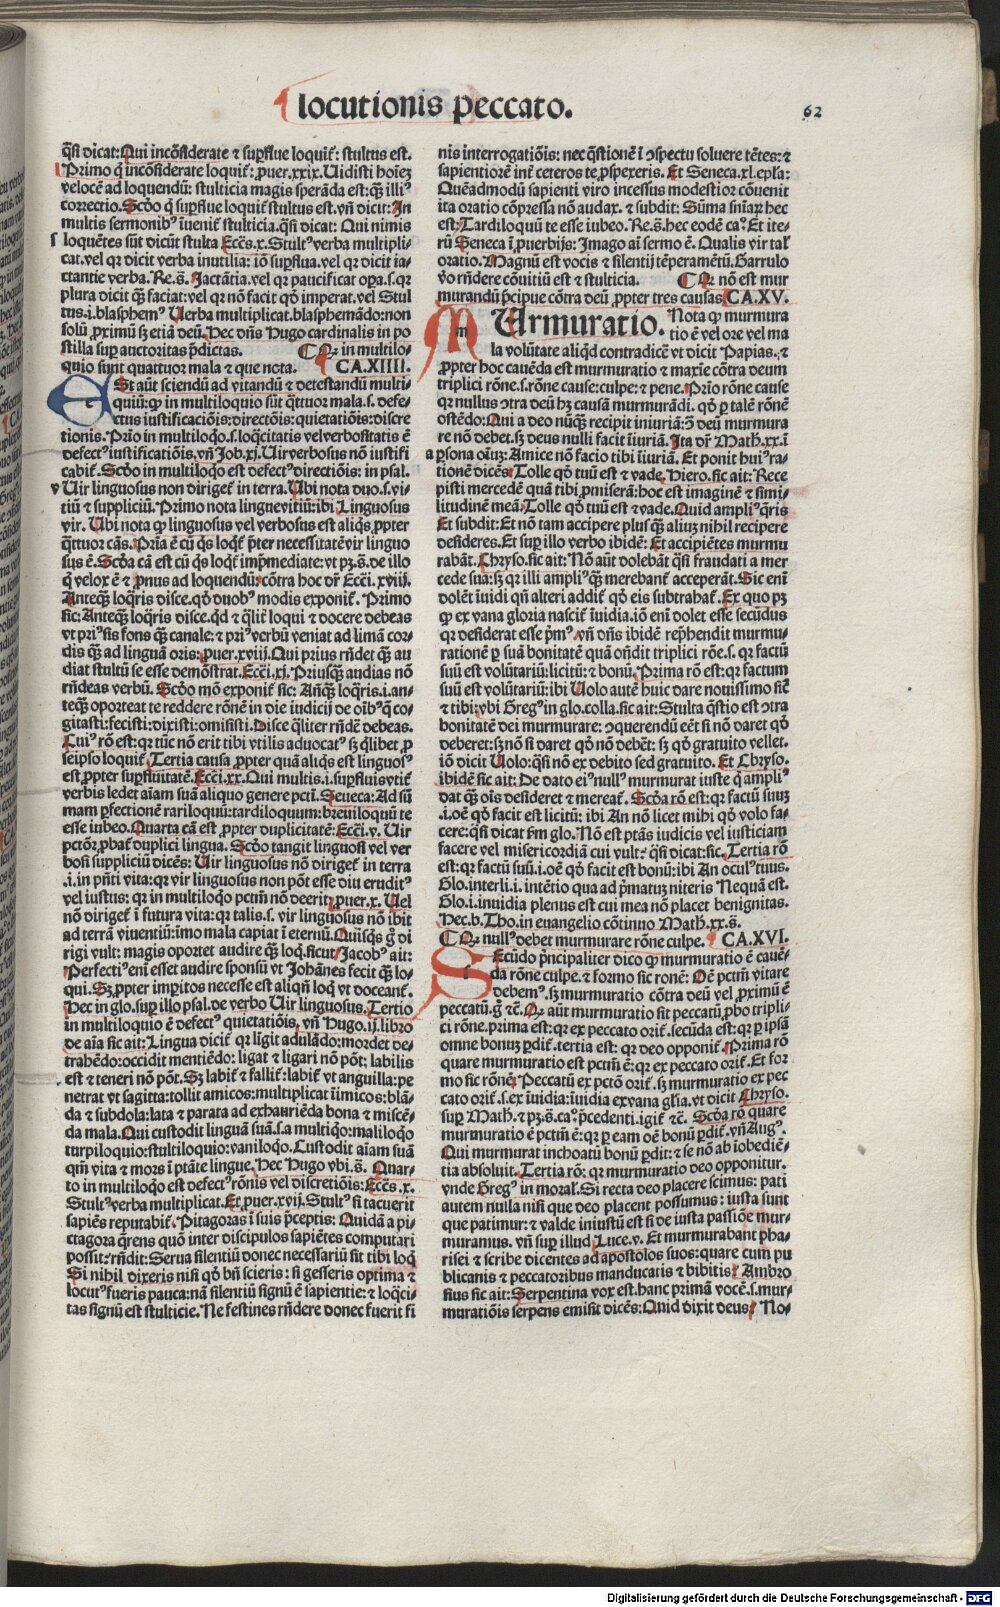 locutionis peccato.
62
q̄si dicat: Qui incōsiderate ⁊ suꝑflue loquit᷑: stultus est.
Primo ꝙ incōsiderate loquit᷑: ꝓuer.xxix. Uidisti hoīez
velocē ad loquendū: stulticia magis speranda est: q̄ȝ illiꝰ
correctio. Scd̄o ꝙ suꝑflue loquit᷑ stultus est. vn̄ dicit: In
multis sermonibꝰ īuenit᷑ stulticia. q̄si dicat: Qui nimis
loquētes sūt dicūt stulta Ecc̄s.x. Stultꝰ verba multipli-
cat. vel qꝛ dicit verba inutilia: iō suꝑflua. vel qꝛ dicit ia-
ctantie verba. Re.s̄. Jactātia. vel qꝛ paucificat oꝑa .s. qꝛ
plura dicit q̄ȝ faciat: vel qꝛ nō facit qd̄ imperat. vel Stul
tus .i. blasphemꝰ Uerba multiplicat. blasphemādo: non
solū ꝓximū sȝ etiā deū. Hec dn̄s Hugo cardinalis in po
stilla suꝑ auctoritas p̄dictas. ¶ Qꝛ in multilo-
quio sunt quattuor mala ⁊ que nota. CA.XIIII.
ESt aūt sciendū ad vitandū ⁊ detestandū multi-
quiū: ꝙ in multiloquio sūt q̄ttuor mala .s. defe-
ctus iustificatiōis: directōis: quietatiōis: discre
tionis. Prīo in multiloq̄o .s. loq̄citatis vel verbositatis ē
defectꝰ iustificatiōis. vn̄ Job.xj. Uir verbosus nō iustifi
cabit᷑. Scd̄o in multiloq̄o est defectꝰ directiōis: in psal.
Uir linguosus non dirigēt in terra. Ubi nota duo .s. vi-
tiū ⁊ suppliciū. Primo nota linguevitiū: ibi Linguosus
vir. Ubi nota ꝙ linguosus vel verbosus est aliq̄s ꝓpter
q̄ttuor cās. Prīa ē cū q̄s loq̄t᷑ ꝓter necessitatē vir linguo
sus ē. Scd̄a cā est cū q̄s loq̄t᷑ imp̄mediate: vt pȝ .s. de illo
q̇ velox ē ⁊ ꝓnus ad loquendū: cōtra hoc dr̄ Ecci.xviij.
Anteq̄ȝ loq̄ris disce. qd̄ duobꝰ modis exponit᷑. Primo
sic: Anteq̄ȝ loq̄ris disce. qd̄ ⁊ q̄lit᷑ loqui ⁊ docere debeas
vt priꝰ sis fons q̄ȝ canale: ⁊ priꝰ verbū veniat ad limā cor-
dis q̄ȝ ad linguā oris: ꝓuer.xviij. Qui prius rn̄det q̄ȝ au
diat stultū se esse demōstrat. Ecci.xj. Priusq̄ȝ audias nō
rn̄deas verbū. Scd̄o mō exponit᷑ sic: An̄q̄ȝ loq̄ris .i. an-
teq̄ȝ oporteat te reddere rōnē in die iudicij de oībꝰ q̄ co-
gitasti: fecisti: dixisti: omisisti. Disce q̄liter rn̄dē debeas.
Cuiꝰ rō est: qꝛ tūc nō erit tibi vtilis aduocatꝰ sȝ q̄libet ꝓ
seipso loquit᷑. Tertia causa ꝓpter quā aliq̄s est linguosꝰ
est ꝓpter suꝑfluitatē. Ecci.xx. Qui multis .i. suꝑfluis vtit᷑
verbis ledet aīam suā aliquo genere pcti. Seueca: Ad sū
mam ꝑfectionē rariloquū: tardiloquum: breuiloquū te
esse iubeo. Quarta cā est ꝓpter duplicitatē: Ecci.v. Uir
pctōꝛ ꝓbat᷑ duplici lingua. Scd̄o tangit linguosi vel ver
bosi suppliciū dicēs: Uir linguosus nō dirigēt in terra
.i. in pn̄ti vita: qꝛ vir linguosus non pōt esse diu eruditꝰ
vel iustus: qꝛ in multiloq̄o pctm̄ nō deerit: ꝓuer.x. Uel
nō dirigēt ī futura vita: qꝛ talis .s. vir linguosus nō ibit
ad terrā viuentiū: imo mala capiat ī eternū. Quisq̄s g̊ di
rigi vult: magis oportet audire q̄ȝ loq̄. sicut Jacobꝰ ait:
Perfectiꝰ eni esset audire sponsū vt Johānes fecit q̄ȝ lo-
qui. Sȝ ꝓpter imꝑitos necesse est aliqn̄ loq̄ vt doceant᷑.
Hec in glo. suꝑ illo psal. de verbo Uir linguosus. Tertio
in multiloquio ē defectꝰ quietatiōis. vn̄ Hugo.ij. libro
de aīa sic ait: Lingua dicit᷑ qꝛ ligit adulādo: mordet de-
trahēdo: occidit mentiēdo: ligat ⁊ ligari nō pōt; labilis
est ⁊ teneri nō pōt. Sȝ labit᷑ ⁊ fallit: labit᷑ vt anguilla: pe
netrat vt sagitta: tollit amicos: multiplicat īimicos: blā-
da ⁊ subdola: lata ⁊ parata ad exhauriēda bona ⁊ miscē-
da mala. Qui custodit linguā suā .s. a multiq̄o: maliloq̄o
turpiloquio: stultiloquio: vaniloq̄o. Custodit aīam suā
qm̄ vita ⁊ mors ī ptāte lingue. Hec Hugo vbi.s̄. Quar-
to in multiloq̄o est defectꝰ rōnis vel discretiōis: Ecc̄s.x.
Stultꝰ verba multiplicat. Et ꝓuer.xvij. Stultꝰ si tacuerit
sapiēs reputabit᷑. Pitagoras ī suis p̄ceptis: Quidā a pi-
ctagora q̄rens quō inter discipulos sapiētes computari
possit: rn̄dit: Serua silentiū donec necessariū sit tibi loq̄
Si nihil dixeris nisi qd̄ bn̄ scieris: si gesseris optima ⁊
locutꝰ fueris pauca: nā silentiū signū ē sapientie: ⁊ loq̄ci-
tas signū est stulticie. Ne festines rn̄dere donec fuerit fi
nis interrogatiōis: nec q̄stionē ī ꝯspectu soluere tētes: ⁊
sapientiorē int᷑ ceteros te ꝓspexeris. Et Seneca.xl. ep̄la:
Quēadmodū sapienti viro incessus modestior cōuenit
ita oratio cōpressa nō audax. ⁊ subdit: Sūma sn̄iaꝝ hec
est: Tardiloquū te esse iubeo. Re.s̄. hec eodē ca°. Et ite-
rū Seneca ī ꝓuerbijs: Imago aī sermo ē. Qualis vir tal᷑
oratio. Magnū est vocis ⁊ silentij tēperamētū. Garrulo
v̊o rn̄dere cōuitiū est ⁊ stulticia. ¶ Qꝛ nō est mur
murandū p̄cipue cōtra deū ꝓpter tres causas CA.XV.
MUrmuratio. Nota ꝙ murmura
tio ē vel ore vel ma
la volūtate aliq̄d contradicē vt dicit Papias. ⁊
ꝓpter hoc cauēda est murmuratio ⁊ maxīe cōtra deum
triplici rōne .s. rōne cause: culpe: ⁊ pene. Prīo rōne cause
qꝛ nullus ꝯtra deū hȝ causā murmurādi. qd̄ ꝑ talē rōnē
ostēdo: Qui a deo nūq̄ȝ recipit iniuriā: ꝯ̄ deū murmura
re nō debet. sȝ deus nulli facit īiuriā. Ita dr̄ Math.xx. ī
ꝑsona oīuȝ: Amice nō facio tibi īiuriā. Et ponit huiꝰ ra-
tionē dicēs Tolle qd̄ tuū est ⁊ vade. Hiero. sic ait: Rece
pisti mercedē quā tibi ꝓmiserā: hoc est imaginē ⁊ simi-
litudinē meā. Tolle qd̄ tuū est ⁊ vade. Quid ampliꝰ q̄ris
Et subdit: Et nō tam accipere plus q̄ȝ aliuȝ nihil recipere
desideres. Et suꝑ illo verbo ibidē: Et accipiētes murmu
rabāt. Chryso. sic ait: Nō aūt dolebāt q̄si fraudati a mer
cede sua: sȝ qꝛ illi ampliꝰ q̄ȝ merebant᷑ acceperāt. Sic enī
dolēt īuidi qn̄ alteri addit᷑ qd̄ eis subtrahat᷑. Ex quo pȝ
ꝙ ex vana gloria nascit᷑ īuidia. iō eni dolet esse secūdus
qꝛ desiderat esse p̄mꝰ. vn̄ dn̄s ibidē rep̄hendit murmu-
rationē ꝑ suā bonitatē quā on̄dit triplici rōe .s. qꝛ factū
suū est volūtariū: licitū: ⁊ bonū. Prima rō est: qꝛ factum
suū est volūtariū: ibi Uolo autē huic dare nouissimo sic᷑
⁊ tibi: vbi Gregꝰ in glo. colla. sic ait: Stulta q̄stio est ꝯtra
bonitatē dei murmurare: ꝯquerendū eēt si nō daret qd̄
deberet: sȝ nō si daret qd̄ nō debēt: sȝ qd̄ gratuito vellet.
iō dicit Uolo: q̄si nō ex debito sed gratuito. Et Chryso.
ibidē sic ait: De dato eiꝰ nullꝰ murmurat iuste q̇ ampliꝰ
dat q̄ȝ oīs desideret ⁊ mereat᷑. Scd̄a rō est: qꝛ factū suuȝ
.i. oē qd̄ facit est licitū: ibi An nō licet mihi qd̄ volo fa-
cere: q̄si dicat ẜm glo. Nō est ptās iudicis vel iusticiam
facere vel misericordiā cui vult: q̄si dicat: sic. Tertia rō
est: qꝛ factū suū .i. oē qd̄ facit est bonū: ibi An oculꝰ tuus.
Glo. interli. i. intētio qua ad p̄matuȝ niteris Nequā est.
Glo. i. inuidia plenus est cui mea nō placet benignitas.
Hec.b. Tho. in euangelio cōtinuo Math.xx.s̄.
¶ Qꝛ nullꝰ debet murmurare rōne culpe. CA.XVI.
SEcūdo p̄ncipaliter dico ꝙ murmuratio ē cauē-
da rōne culpe. ⁊ formo sic ronē: Oē pctm̄ vitare
debemꝰ. sȝ murmuratio cōtra deū vel ꝓximū ē
peccatū. g̊ ⁊c̄. Qꝛ aūt murmuratio sit peccatū ꝓbo tripli-
ci rōne. prima est: qꝛ ex peccato orit᷑. secūda est: qꝛ ꝑ ipsā
omne bonuȝ ꝑdit᷑. tertia est: qꝛ deo opponit᷑. Prima rō
quare murmuratio est pctm̄ ē: qꝛ ex peccato orit᷑. Et for
mo sic rōnē: Peccatū ex pctō orit᷑. sȝ murmuratio ex pec
cato orit᷑ .s. ex īuidia: īuidia ex vana gl̄ia. vt dicit Chryso.
suꝑ Math. ⁊ pȝ.s̄.ca. p̄cedenti. igit᷑ ⁊c̄. Scd̄a rō quare
murmuratio ē pctm̄ ē: qꝛ ꝑ eam oē bonū ꝑdit᷑. vn̄ Augꝰ.
Qui murmurat inchoatū bonū ꝑdit: ⁊ se nō ab īobediē-
tia absoluit. Tertia rō: qꝛ murmuratio deo opponitur.
vnde Gregꝰ in moral᷑. Si recta deo placere scimus: pati
autem nulla nisi que deo placent possumus: iusta sunt
que patimur: ⁊ valde iniustū est si de iusta passiōe mur-
muramus. vn̄ suꝑ illud Luce.v. Et murmurabant pha-
risei ⁊ scribe dicentes ad apostolos suos: quare cum pu
blicanis ⁊ peccatoribus manducatis ⁊ bibitis: Ambro
sius sic ait: Serpentina vox est. hanc primā vocē .s. mur-
muratiōis serpens emisit dicēs: Quid dixit deus: No-
Digitalisierung gefördert durch die Deutsche Forschungsgemeinschaft - DFG